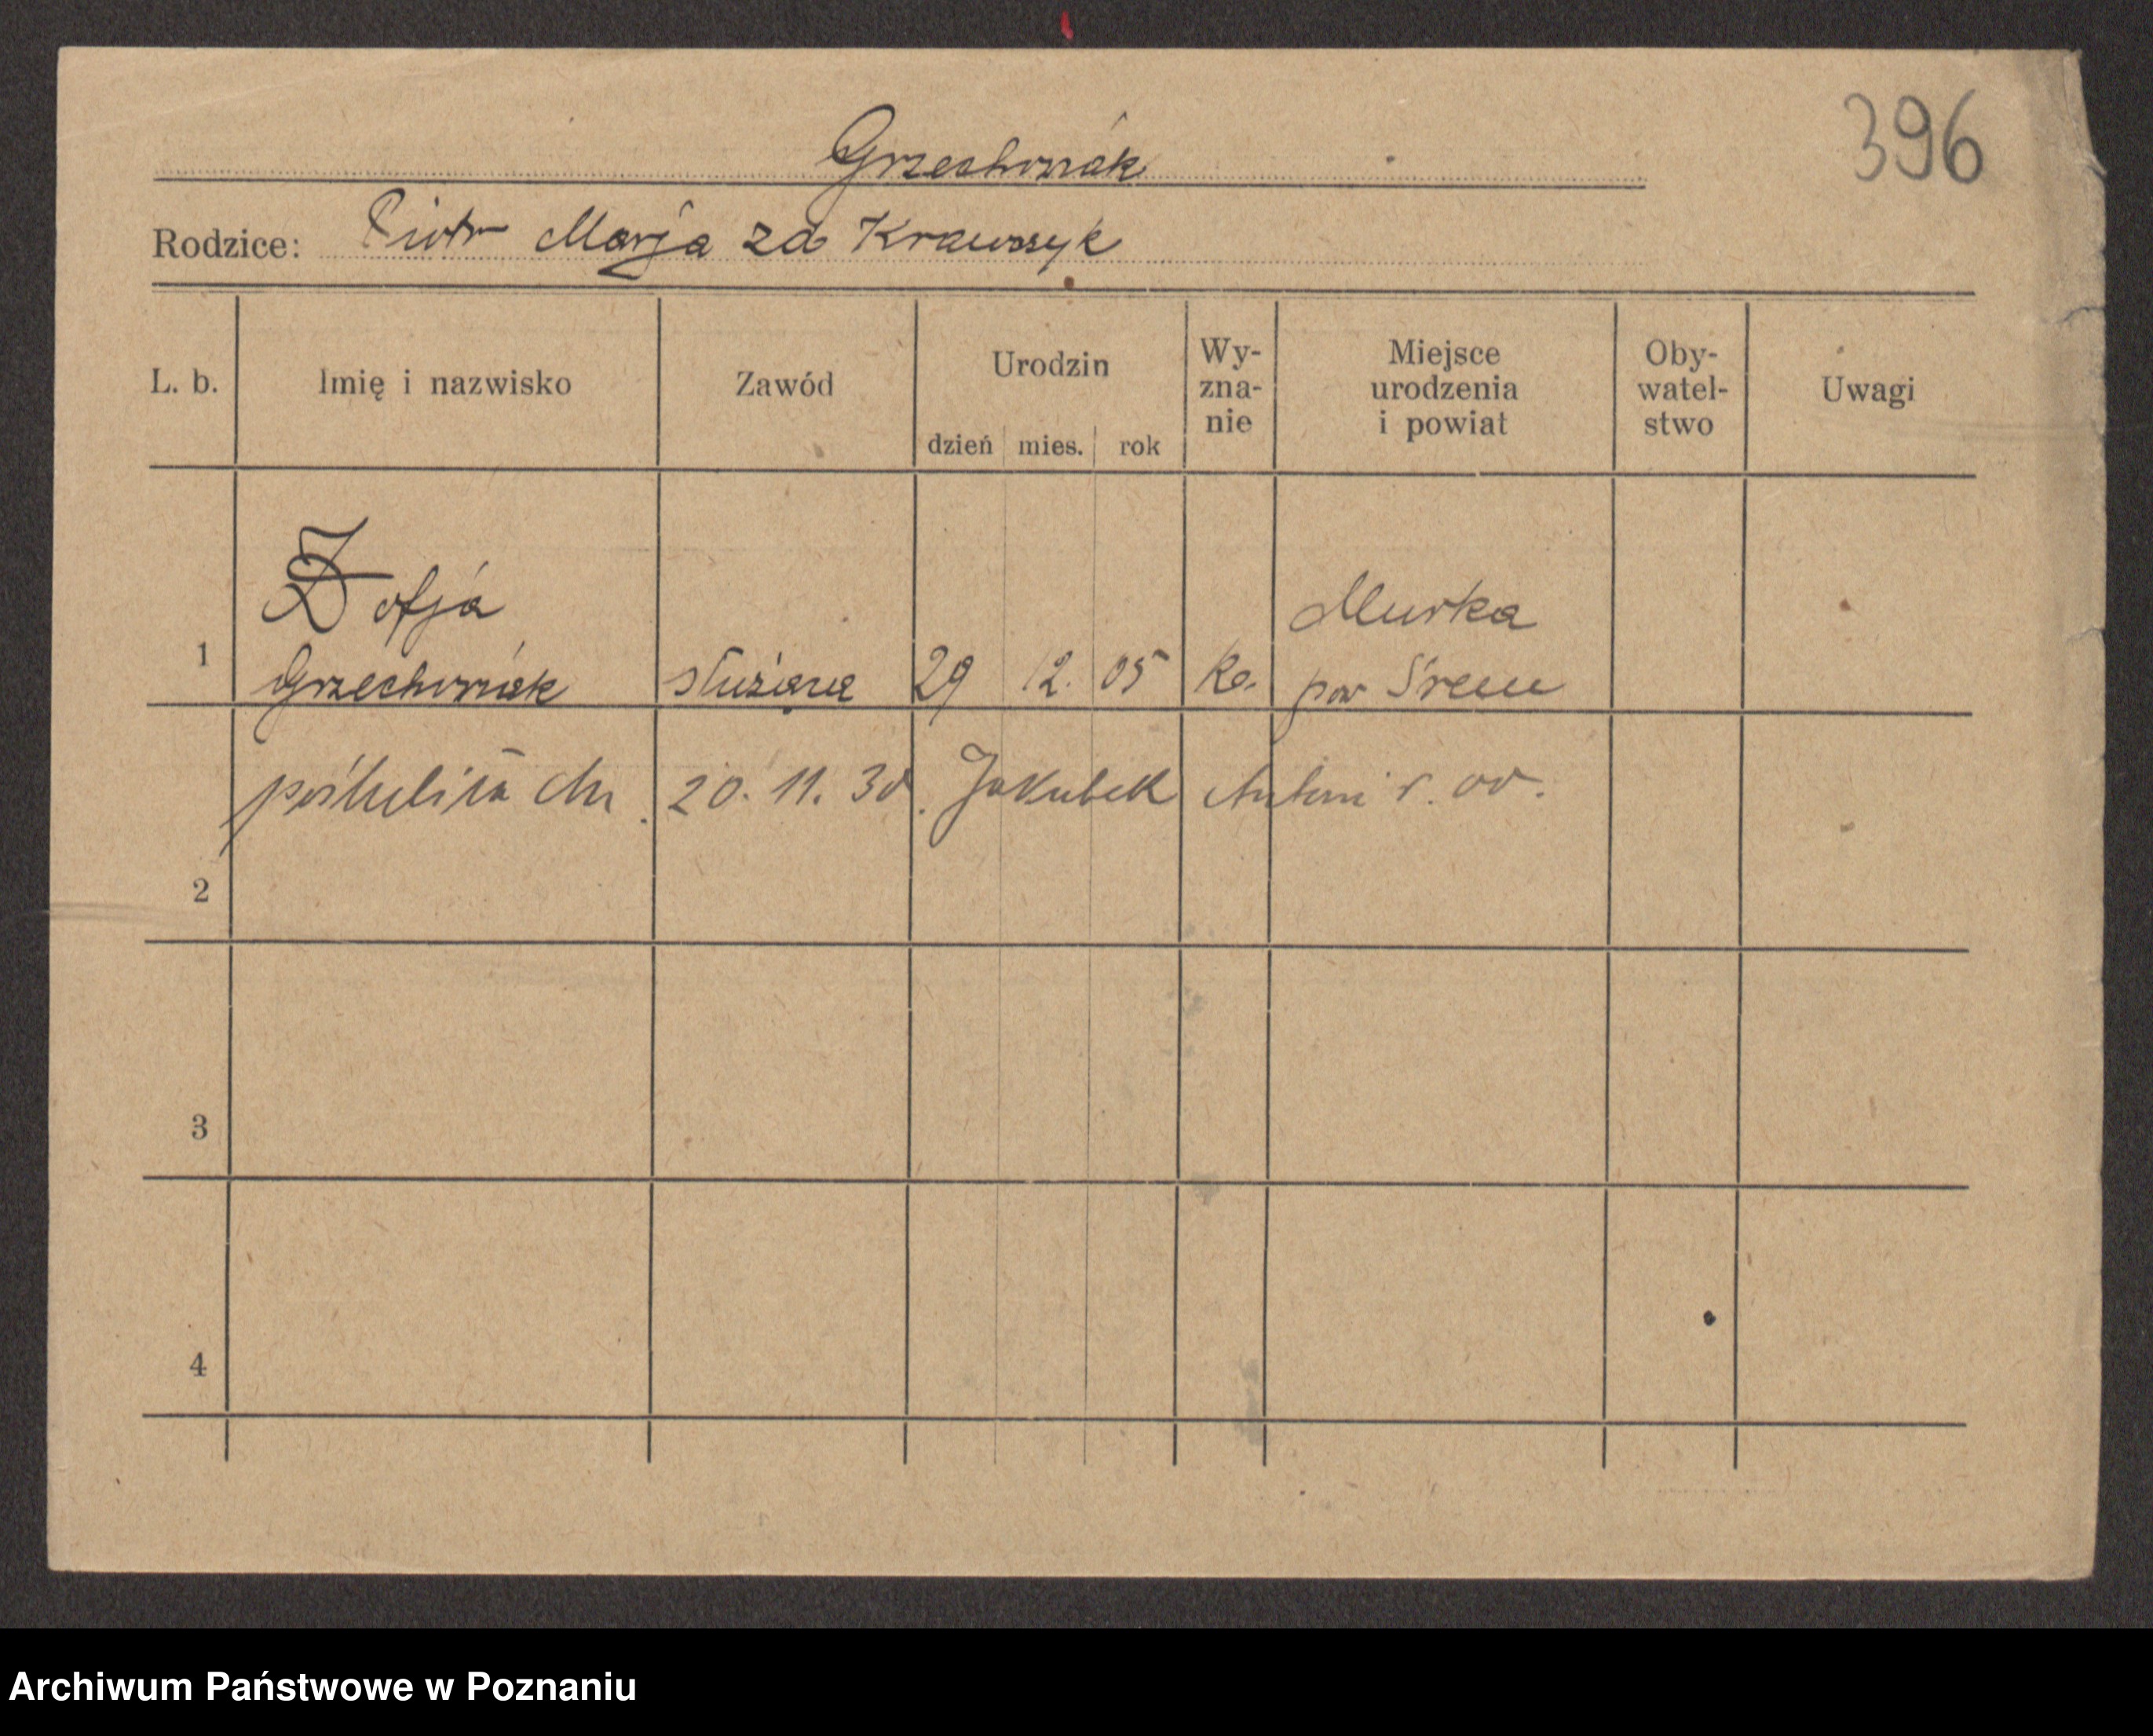 396
Grzechowiak
Rodzice: Piotr Marja zd Krawczyk
L. b. Imię i nazwisko Zawód Urodzin dzień mies. rok Wy-zna-nie Miejsce urodzenia i powiat Oby-watel-stwo Uwagi
Zofja Murka
1 Grzechowiak służąca 29 12. 05 Ka. pow Śrem
poślubiła dn. 20. 11. 30. Jakubek Antoni r. 00.
2
3
4
Archiwum Państwowe w Poznaniu